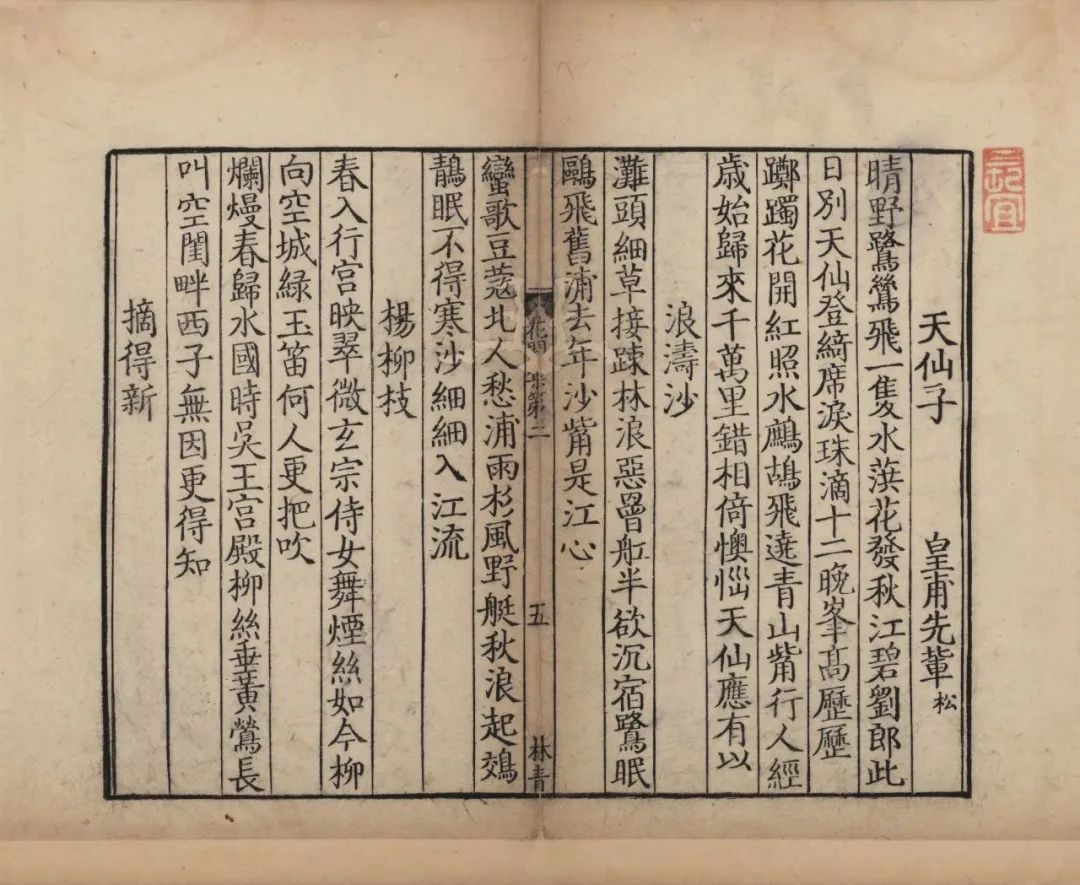 天仙子 皇甫先輩松
晴野鷺鷥飛一隻水葓花發秋江碧劉郎此
日別天仙登綺席淚珠滴十二晚峯髙歷歷
躑躅花開紅照水鷓鴣飛遶青山觜行人經
歲始歸來千萬里錯相倚懊惱天仙應有以
浪濤沙
灘頭細草接踈林浪惡罾舡半欲沉宿鷺眠
鷗飛舊浦去年沙觜是江心
花間 第二 五 林青
蠻歌豆蔻北人愁浦雨杉風野艇秋浪起鵁
鶄眠不得寒沙細細入江流
楊柳技
春入行宮映翠微玄宗侍女舞煙絲如今柳
向空城綠玉笛何人更把吹
爛熳春歸水國時吳王宮殿柳絲垂黃鶯長
叫空閨畔西子無因更得知
摘得新